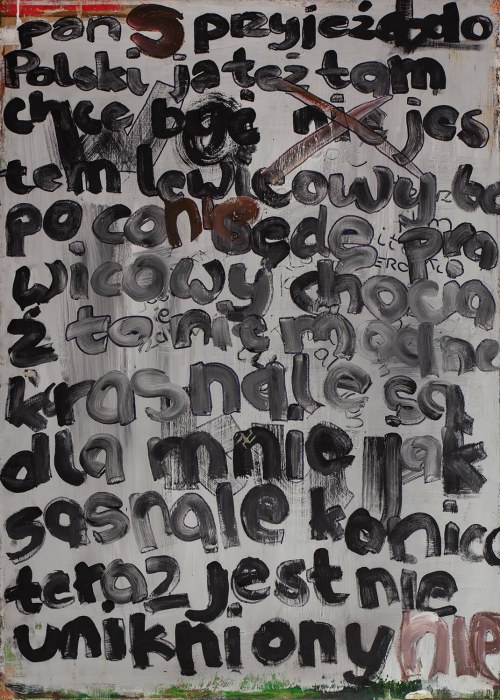 pan S przyjeżdża do
Polski ja też tam
chce być nie jes
tem lewicowy bo
po co nie będę pra
wicowy chocia
ż to nie modne
krasnale są
dla mnie jak
sosnale konico
teraz jest nie
unikniony nie